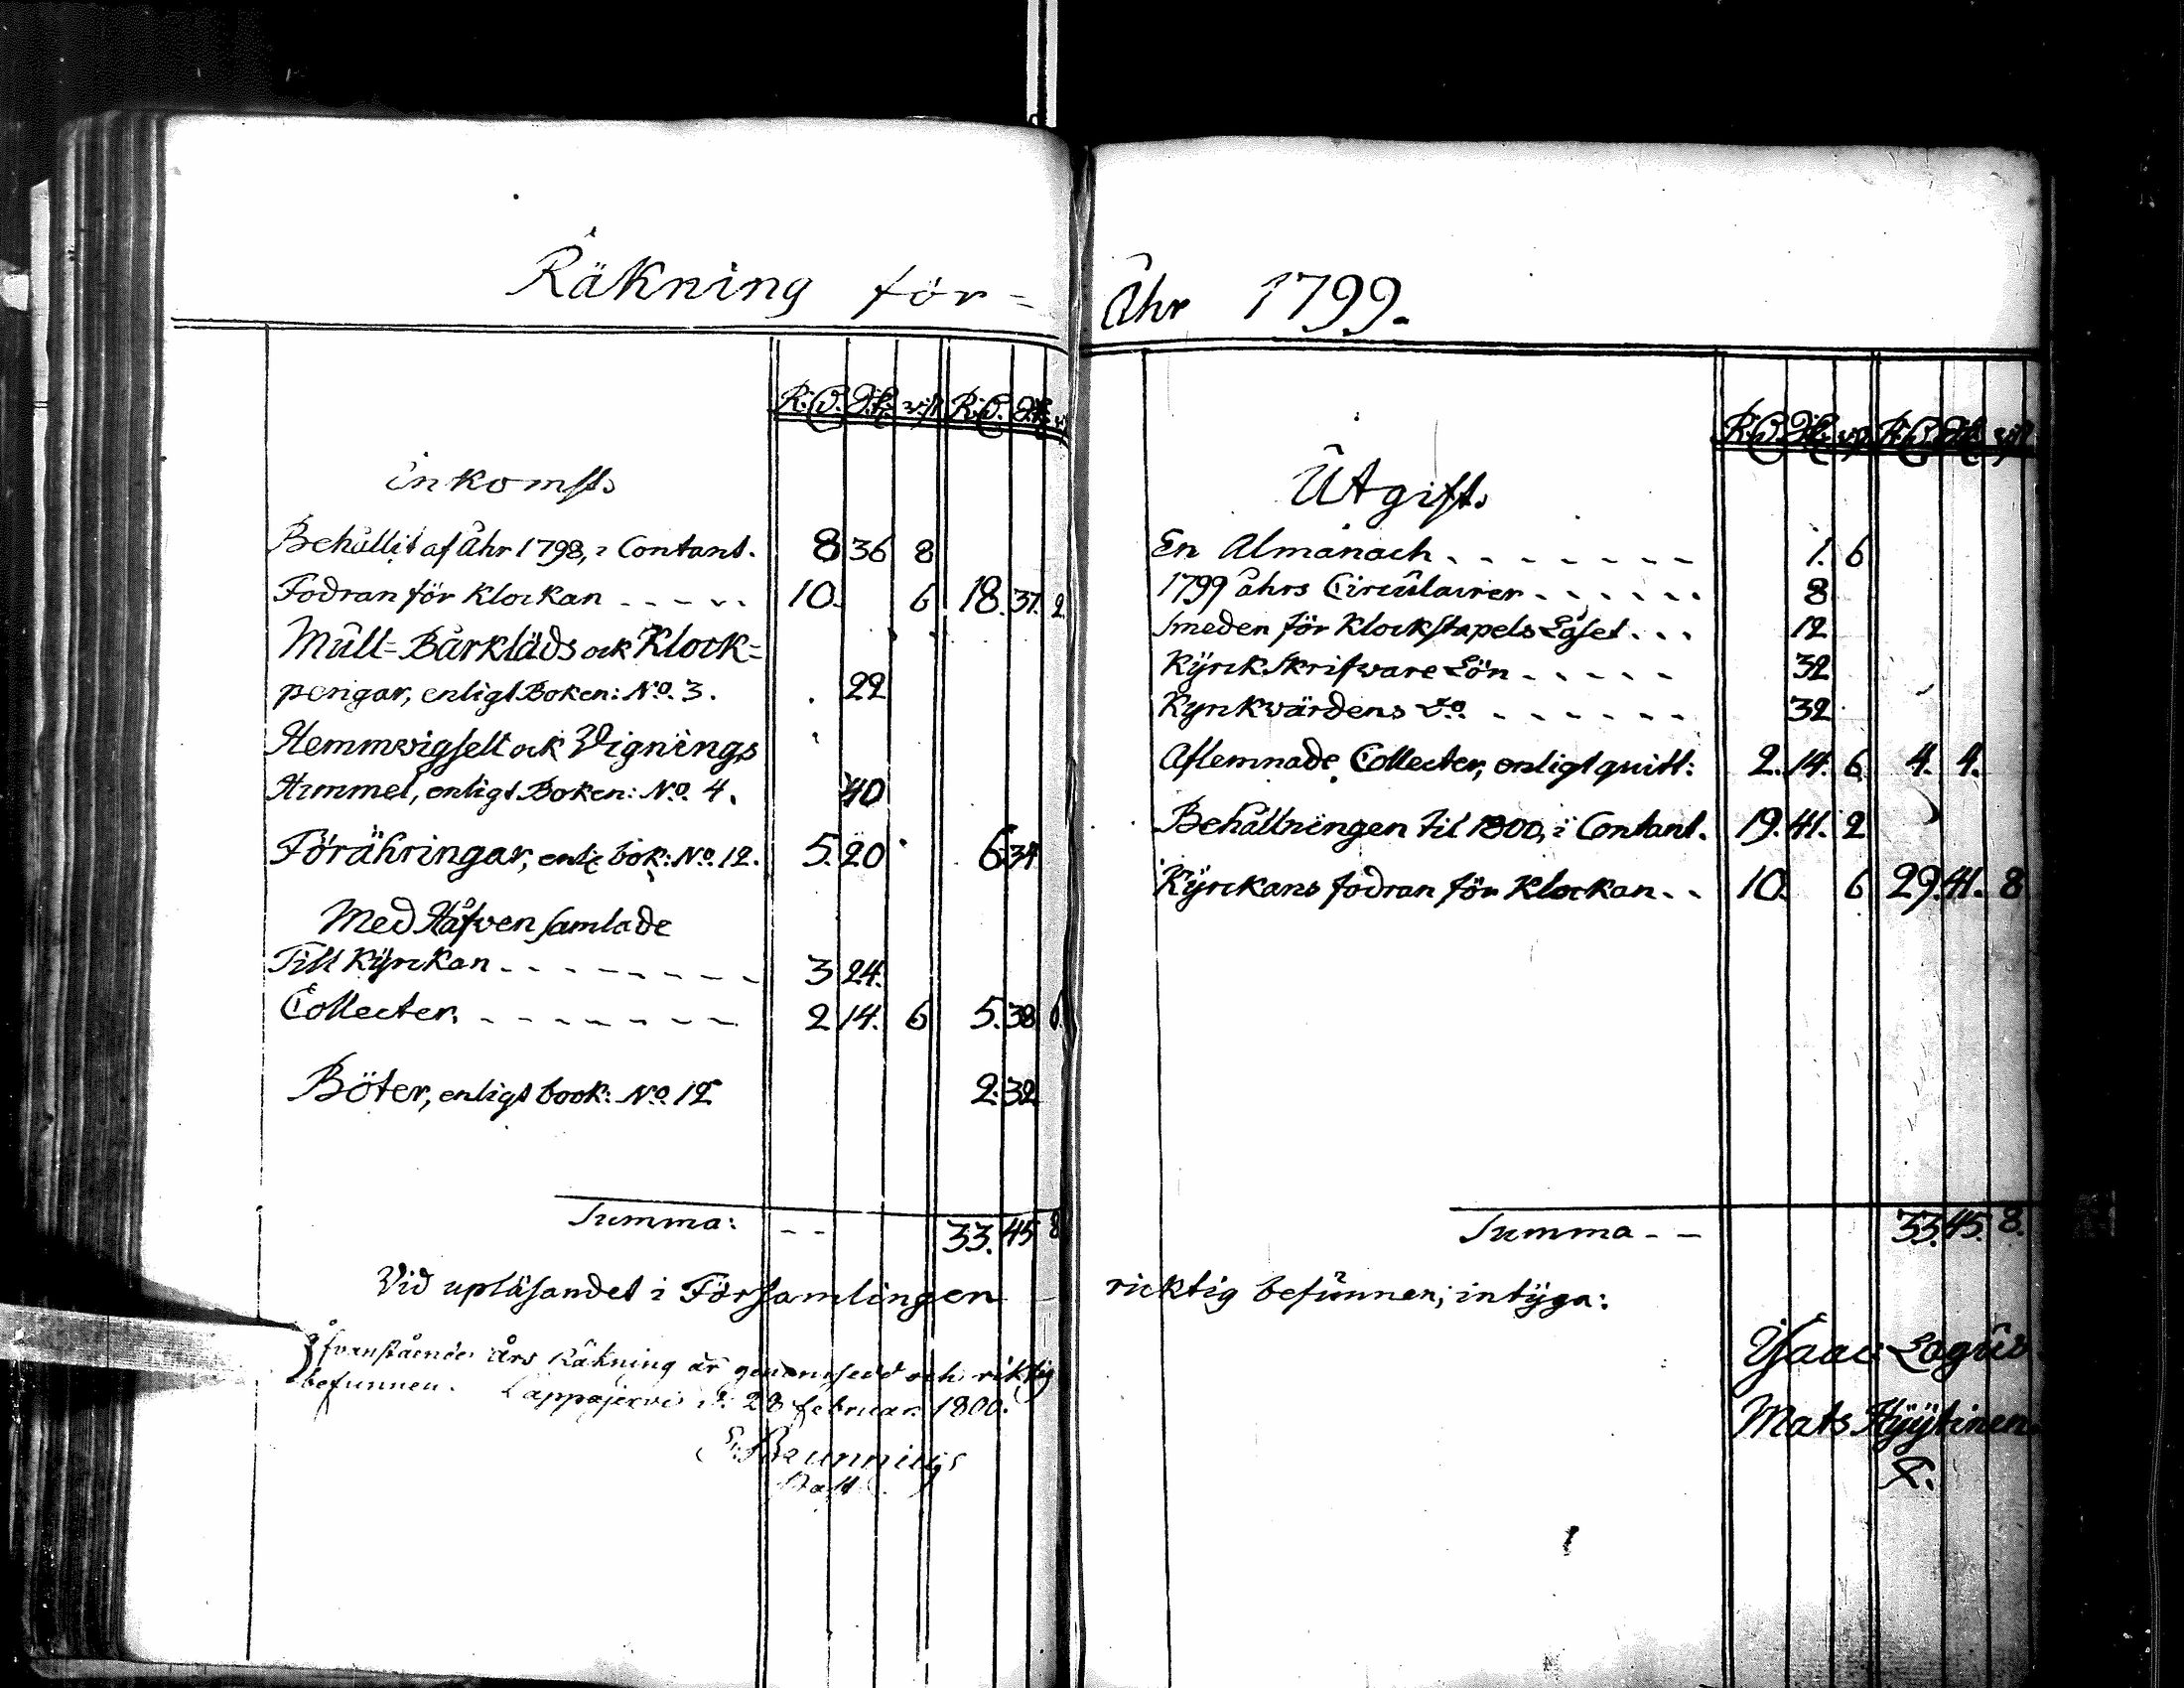 Räkning för=
R:D. Sk: rst R:D. Sk:
inkomst.
Behållit af åhr 1798, i Contant. 8 36 8
Fodran för klockan ----- 10. 6 18. 37. 2
Mull= Bårkläds ock Klock=
pengar, enligt Boken: No. 3. 22
Hemmvigselt ock Vignings
Himmel, enligt Boken: No. 4. 40
Förähringar, enlig bok: No. 12. 5. 20 6 34
Med Håfven samlade
Till Kÿrckan -------- 3 24.
Collecter. -------- 2 14. 6 5. 38 6.
Böter, enligt book: No. 12 2. 32
Summa: -- 33. 45 8
Vid upläsandet i Församlingen
Åfvanstående års Räkning är genomsedd och riktig
befunnen. Lappajervi d. 28 februar. 1800.
E: Brunnius
Past
Åhr 1799.
R:D Sk: rst R:D Sk: rst
Utgift.
En Almanach ------- 1. 6
1799 åhrs Circulairer ------ 8
Smeden för Klockstapels Låset ... 12
Kÿrck Skrifvare Lön ----- 32
Kyrckvärdens do. ------ 32
Aflemnade Collecter, enligt quitt: 2. 14. 6 4. 4.
Behållningen til 1800, i Contant. 19. 41. 2
Kÿrckans fodran för Klockan -- 10. 6 29. 41. 8
Summa -- 33. 45. 8.
ricktig befunnen; intÿga:
Mats Hÿÿtinen